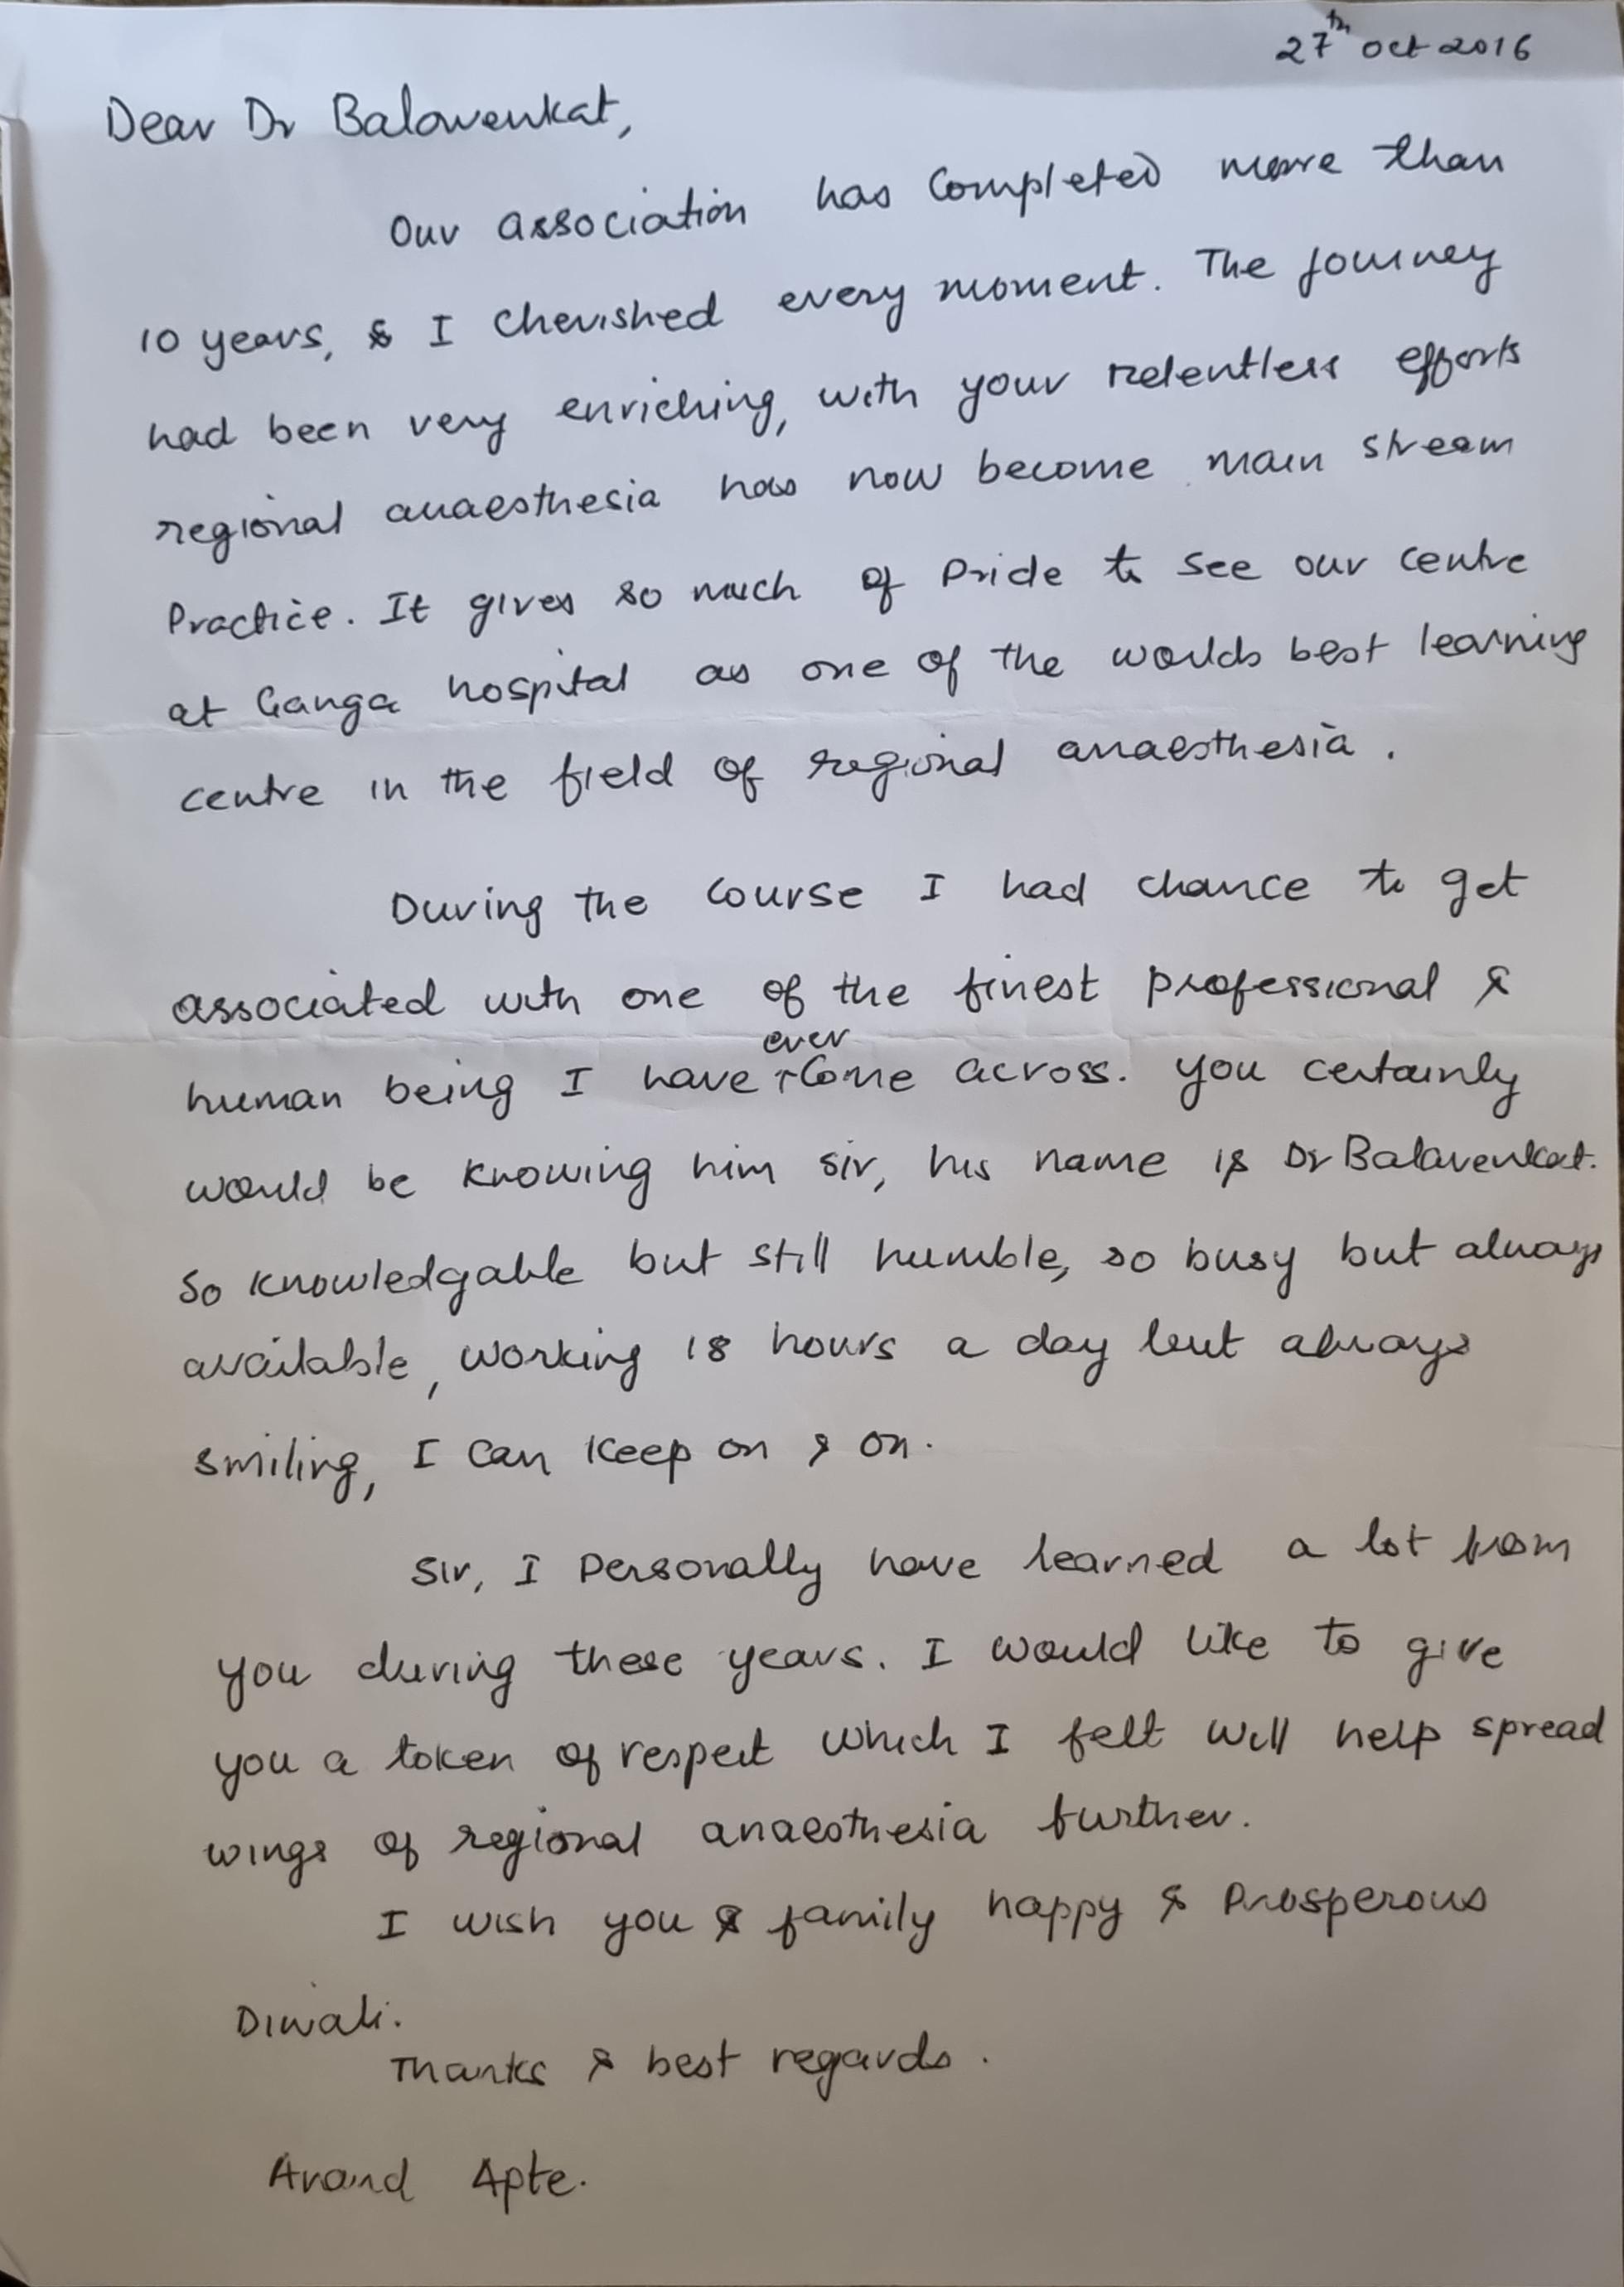 27th Oct 2016
Dear Dr Balavenkat,
Our association has completed more than
10 years, & I cherished every moment. The journey
had been very enriching, with your relentless efforts
regional anaesthesia has now become main stream
Practice. It gives so much of Pride to see our centre
at Ganga hospital as one of the worlds best learning
centre in the field of regional anaesthesia.
During the course I had chance to get
associated with one of the finest professional &
human being I have ever come across. You certainly
would be knowing him sir, his name is Dr Balavenkat.
So knowledgable but still humble, so busy but always
available, working 18 hours a day but always
smiling, I can keep on & on.
Sir, I Personally have learned a lot from
you during these years. I would like to give
you a token of respect which I felt will help spread
wings of regional anaesthesia further.
I wish you & family happy & Prosperous
Diwali.
Thanks & best regards.
Anand Apte.